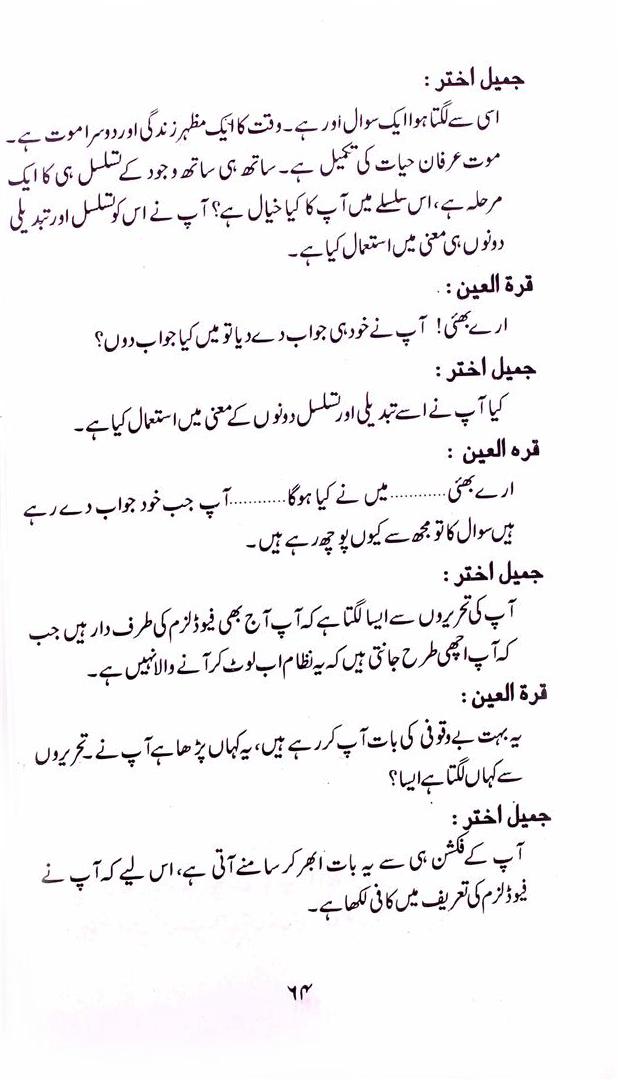 جمیل اختر :
اسی سے لگتا ہوا ایک سوال اور ہے۔ وقت کا ایک مظہر زندگی اور دوسرا موت ہے۔
موت عرفان حیات کی تکمیل ہے۔ ساتھ ہی ساتھ وجود کے تسلسل ہی کا ایک
مرحلہ ہے، اس سلسلے میں آپ کا کیا خیال ہے؟ آپ نے اس کو تسلسل اور تبدیلی
دونوں ہی معنی میں استعمال کیا ہے۔
قرۃ العین :
ارے بھئی! آپ نے خود ہی جواب دے دیا تو میں کیا جواب دوں؟
جمیل اختر :
کیا آپ نے اسے تبدیلی اور تسلسل دونوں کے معنی میں استعمال کیا ہے۔
قرہ العین :
ارے بھئی...........میں نے کیا ہوگا...........آپ جب خود جواب دے رہے
ہیں سوال کا تو مجھ سے کیوں پوچھ رہے ہیں۔
جمیل اختر :
آپ کی تحریروں سے ایسا لگتا ہے کہ آپ آج بھی فیوڈلزم کی طرف دار ہیں جب
کہ آپ اچھی طرح جانتی ہیں کہ یہ نظام اب لوٹ کر آنے والا نہیں ہے۔
قرۃ العین :
یہ بہت بے وقوفی کی بات آپ کر رہے ہیں، یہ کہاں پڑھا ہے آپ نے۔ تحریروں
سے کہاں لگتا ہے ایسا؟
جمیل اختر :
آپ کے فکشن ہی سے یہ بات ابھر کر سامنے آتی ہے، اس لیے کہ آپ نے
فیوڈلزم کی تعریف میں کافی لکھا ہے۔
۶۴